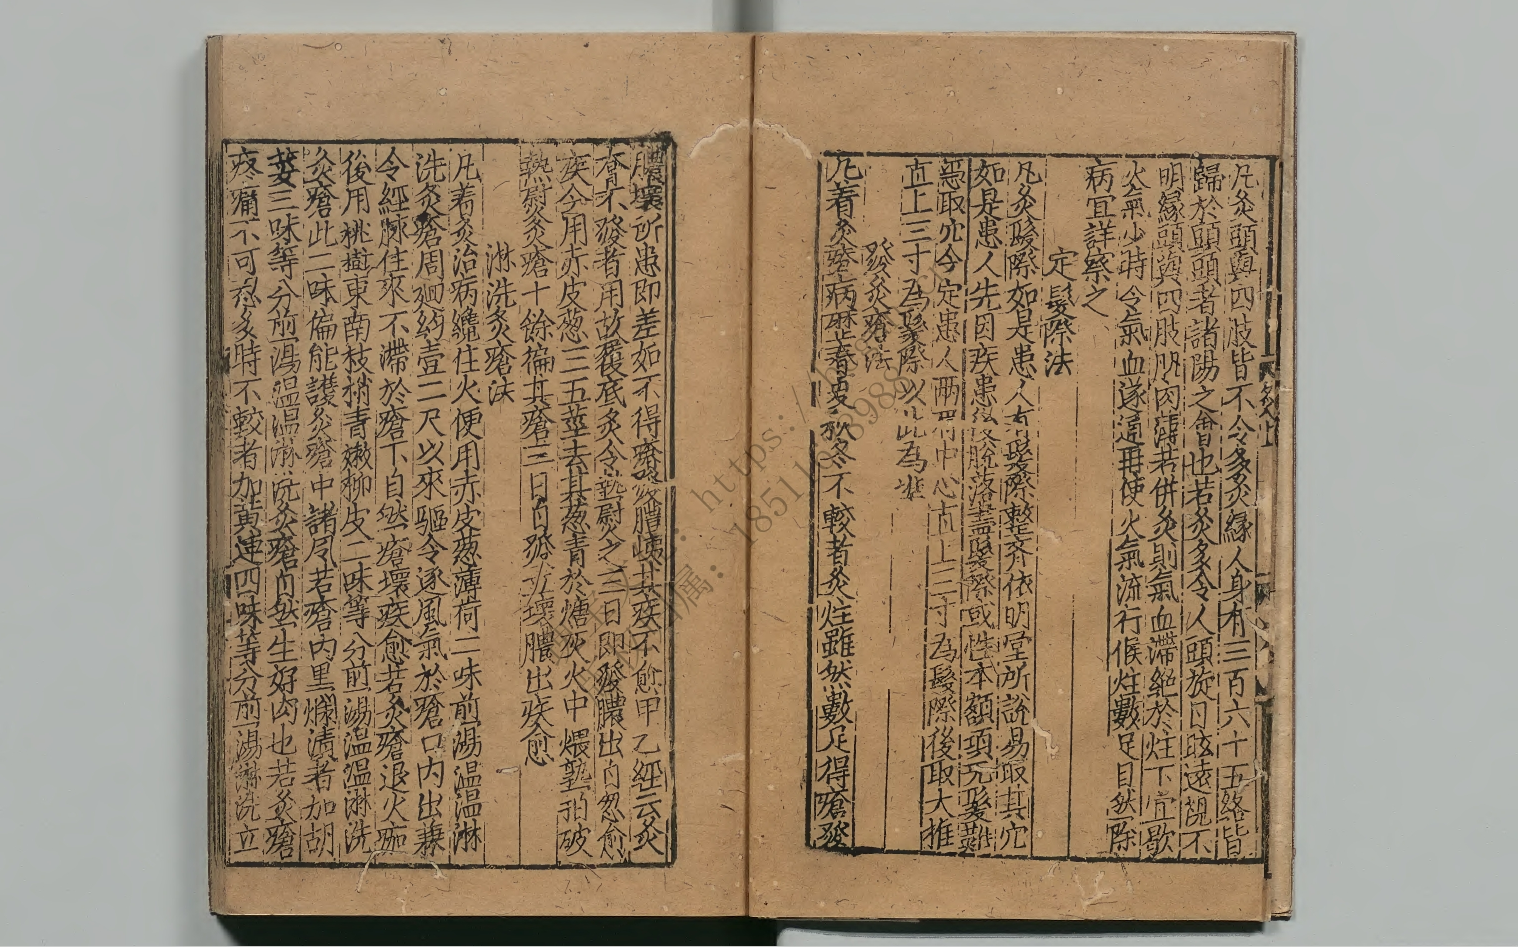 凡灸頭與四肢皆不令多灸縁人身有三百六十五絡皆
歸於頭頭者諸陽之會也若灸多令人頭旋目眩遠覷不
明縁頭與四肢肌肉薄若併灸則氣血滯絶於炷下宜歇
火氣少時令氣血遂通再使火氣流行候炷數足自然除
病宜詳察之
定髮際法
凡灸髮際如是患人有髮際整齊依明堂所説易取其穴
如是患人先因疾患後脫落盡髮際或性本額項無髮難
凴取穴今定患人兩眉中心直上三寸為髮際後取大椎
直上三寸為髮際以此為準
發灸瘡法
凡着灸療病歷春夏秋冬不較者灸炷雖然數足得瘡發
膿壞所患即差如不得瘡發膿壞其疾不愈甲乙經云灸
瘡不發者用故履底灸令熱熨之三日即發膿出自然愈
疾今用赤皮葱三五莖去其葱青於煻灰火中煨熟拍破
熱熨灸瘡十餘徧其瘡三日自發立壞膿出疾愈
淋洗灸瘡法
凡着灸治病纔住火便用赤皮葱薄荷二味煎湯温温淋
洗灸瘡周廻約壹二尺以來驅令逐風氣於瘡口内出兼
令經脉往來不滯於瘡下自然瘡壞疾愈若灸瘡退火痂
後用桃樹東南枝梢青嫩柳皮二味等分煎湯温温淋洗
灸瘡此二味偏能護灸瘡中諸風若瘡内黒爛潰者加胡
荽三味等分煎湯温温淋洗灸瘡自然生好肉也若灸瘡
疼痛不可忍多時不較者加黄連四味等分煎湯淋洗立